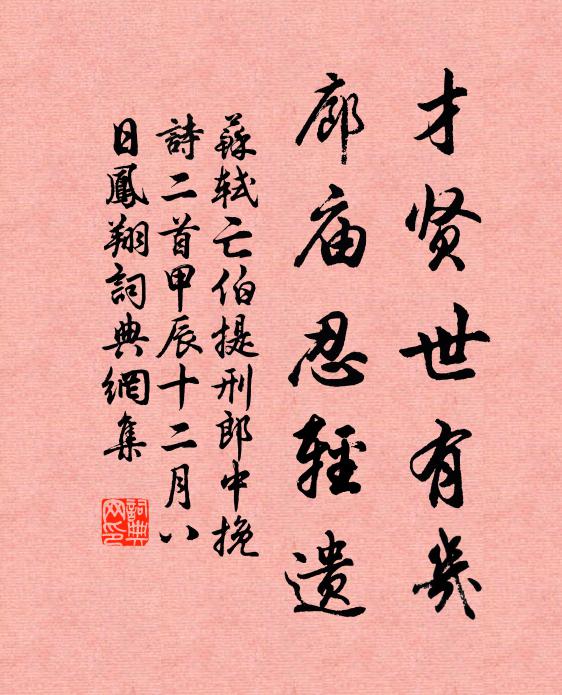 才贤世有幾
廊庙忍輕遗
蘇轼亡伯提刑郎中挽
詩二首甲辰十二月八
日鳳翔詞典網集
詞典
网印